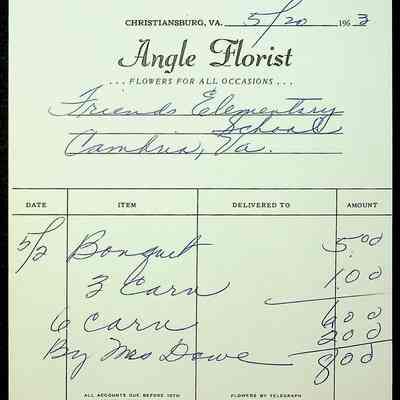 CHRISTIANSBURG, VA. 5/20 1963
Angle Florist
... FLOWERS FOR ALL OCCASIONS ...
Friends Elementry
School
Cambria, Va.
DATE ITEM DELIVERED TO AMOUNT
5/2 Bouquet 5.00
3 Carn 1.00
6 Carn 6 00
2 00
By Mrs Dowe 8 00
ALL ACCOUNTS DUE BEFORE 10TH FLOWERS BY TELEGRAPH